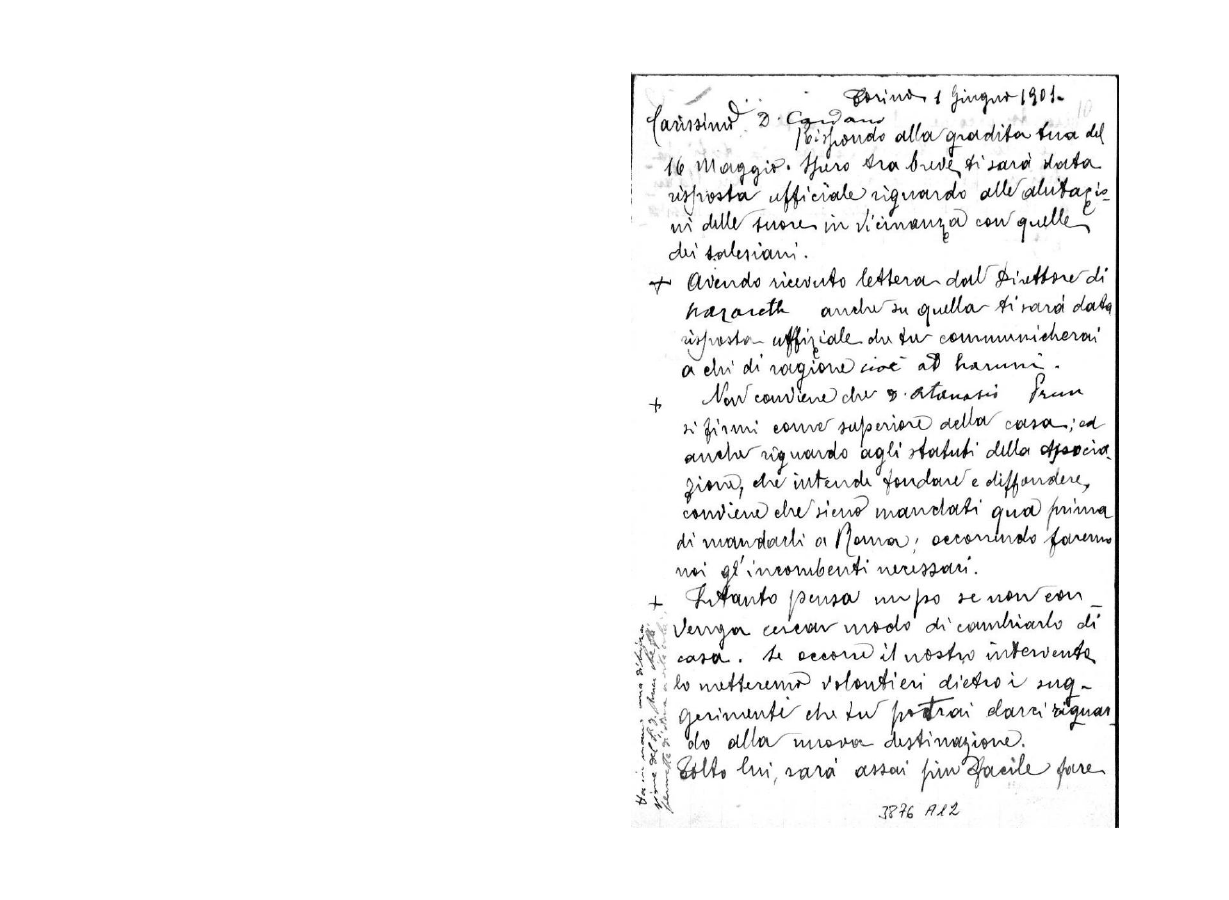 Torino 1 Giugno 1901.
Carissimo D. Cardano
Rispondo alla gradita tua del
16 Maggio. Spero tra breve ti sarà data
risposta ufficiale riguardo alle abitazio-
ni delle suore in vicinanza con quelle
dei salesiani.
+ Avendo ricevuto lettera dal Direttore di
Nazareth anche su quella ti sarà data
risposta uffiziale che tu communicherai
a chi di ragione cioè ad
+ Non conviene che D. Atanasio Prun
si firmi come superiore della casa; ed
anche riguardo agli statuti della Associa-
zione, che intende fondare e diffondere,
conviene che sieno mandati qua prima
di mandarli a Roma; occorrendo faremo
noi gl'incombenti necessari.
+ Intanto pensa un po se non con-
venga cercar modo di cambiarlo di
casa. Se occorre il nostro intervento
lo metteremo volontieri dietro i sug-
gerimenti che tu potrai darci riguar-
do alla nuova destinazione.
Tolto lui, sarà assai più facile fare
Ha in mano una
del che
3876 A12